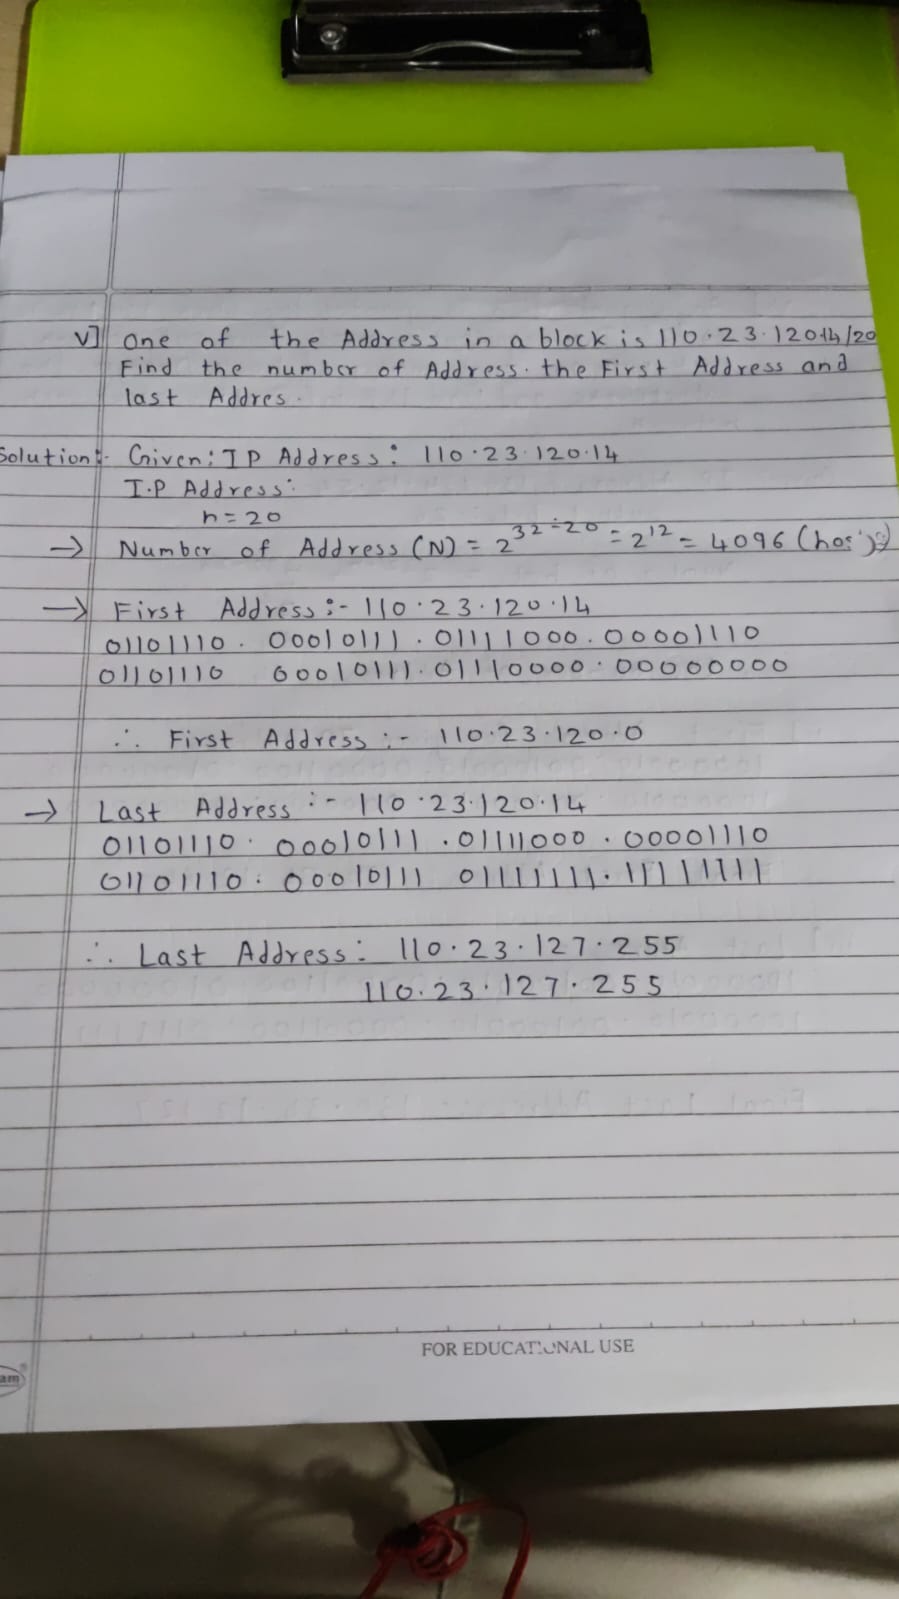 V] One of the Address in a block is 110.23.120.14/20
Find the number of Address. the First Address and
last Addres.
Solution:- Given: IP Address: 110.23.120.14
I.P Address:
n = 20
→ Number of Address (N) = 2^32-20 = 2^12 = 4096
→ First Address :- 110.23.120.14
01101110. 00010111.01111000.00001110
01101110 00010111.01110000.00000000
∴ First Address :- 110.23.120.0
→ Last Address :- 110.23.120.14
01101110. 00010111.01111000.00001110
01101110. 00010111 01111111.11111111
∴ Last Address: 110.23.127.255
110.23.127.255
FOR EDUCATIONAL USE
am